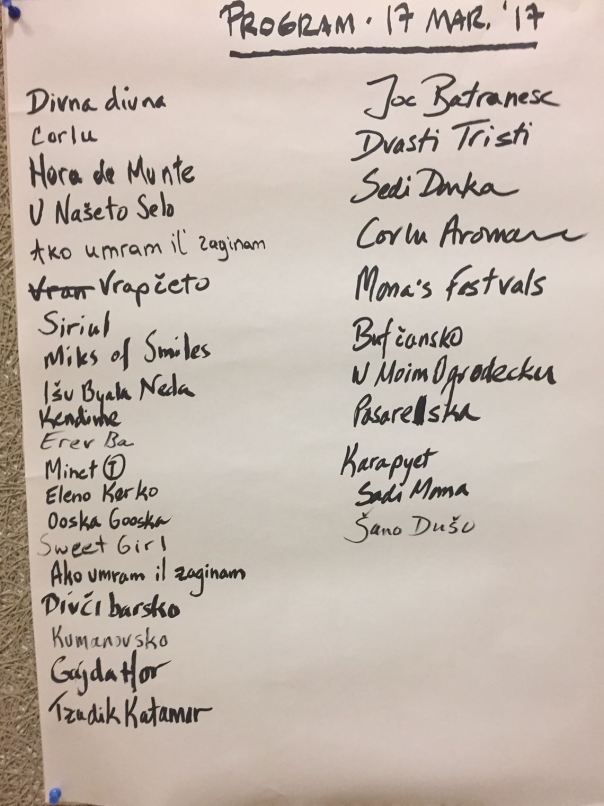 PROGRAM · 17 MAR. '17
Divna divna
Corlu
Hora de Munte
U Našeto Selo
Ako umram il' zaginam
Vran Vrapčeto
Siriul
Miks of Smiles
Išu Byala Neda
Kendime
Erev Ba
Minet Ⓣ
Eleno Kerko
Ooska Gooska
Sweet Girl
Ako umram il zaginam
Divči barsko
Kumanovsko
Gajda Hor
Tzadik Katamar
Joc Batranesc
Dvasti Tristi
Sedi Donka
Corlu Aroman
Mona's Festvals
Bufčansko
W Moim Ogrodecku
Pasarelska
Karapyet
Sadi Moma
Šano Dušo